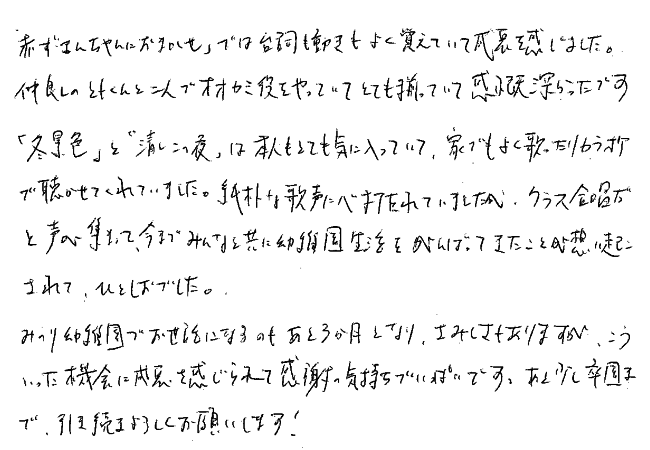 赤ずきんちゃんにおまかせ」では台詞も動きもよく覚えていて成長を感じました。
仲良しの くんと二人でオオカミ役をやっていてとても揃っていて感慨深かったです
「冬景色」と「清しこの夜」は本人もとても気に入っていて、家でもよく歌ったりカラオケ
で聴かせてくれていました。純朴な歌声に癒されていましたが、クラス合唱だ
と声が集まって、今までみんなと共に幼稚園生活をがんばってきたことが想い起こ
されて、ひとしおでした。
みのり幼稚園でお世話になるのもあと3か月となり、さみしさもありますが、こう
いった機会に成長を感じられて感謝の気持ちでいっぱいです。あと少し卒園ま
で、引き続きよろしくお願いします!